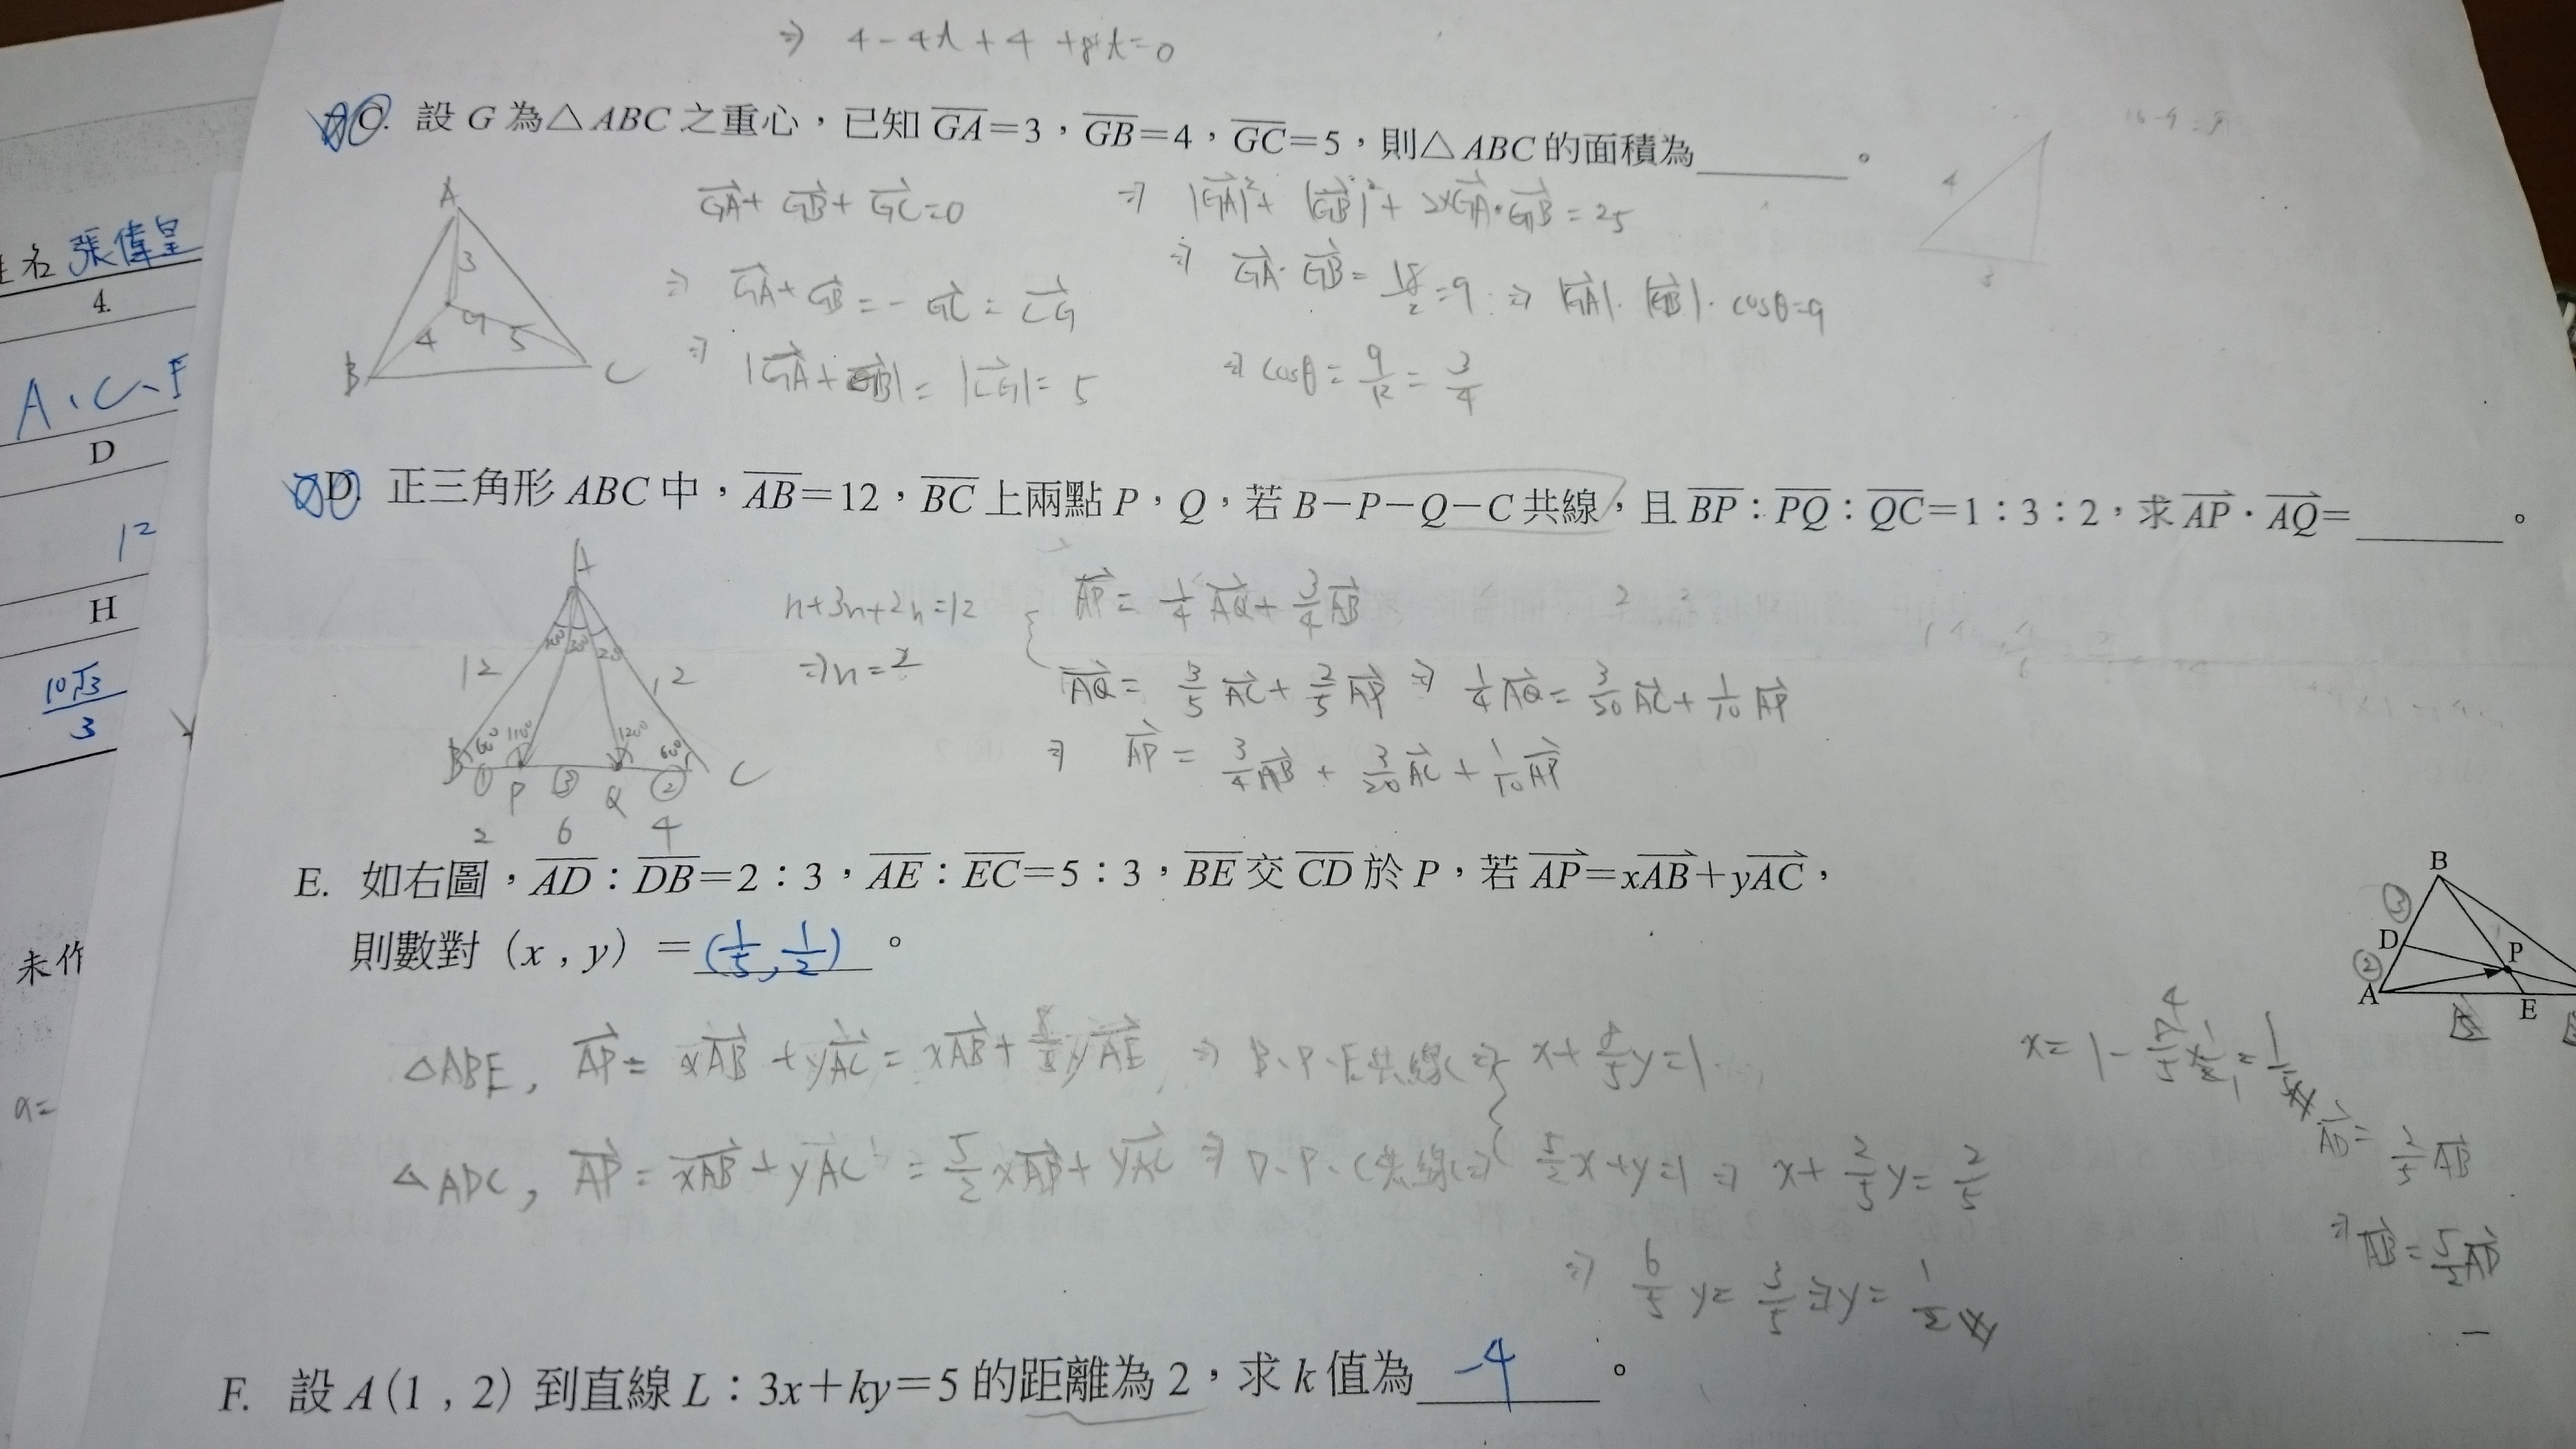 ⇒ 4-4t+4+8t=0
C. 設 G 為△ABC 之重心，已知 GA=3，GB=4，GC=5，則△ABC 的面積為______。
A
3
G
4
5
B
C
GA+GB+GC=0
⇒ GA+GB=-GC=CG
⇒ |GA+GB|=|CG|=5
⇒ |GA|²+|GB|²+2×GA·GB=25
⇒ GA·GB=18/2=9 ⇒ |GA|·|GB|·cosθ=9
⇒ cosθ=9/12=3/4
4
3
姓名 張偉呈
4.
D
12
H
10√3/3
未作
a=
D. 正三角形 ABC 中，AB=12，BC 上兩點 P，Q，若 B-P-Q-C 共線，且 BP：PQ：QC=1：3：2，求 AP·AQ=______。
A
12
12
B
60°
110°
120°
60°
C
① P ③ Q ②
2 6 4
n+3n+2n=12
⇒n=2
AP=1/4AQ+3/4AB
AQ=3/5AC+2/5AP ⇒ 1/4AQ=3/20AC+1/10AP
⇒ AP=3/4AB+3/20AC+1/10AP
E. 如右圖，AD：DB=2：3，AE：EC=5：3，BE 交 CD 於 P，若 AP=xAB+yAC，
則數對 (x , y) = (1/5, 1/2) 。
B
③
D
P
②
A
E
5
△ABE, AP=xAB+yAC=xAB+8/5yAE ⇒ B、P、E共線⇒ x+8/5y=1
△ADC, AP=xAB+yAC=5/2xAD+yAC ⇒ D、P、C共線⇒ 5/2x+y=1 ⇒ x+2/5y=2/5
⇒ 6/5y=3/5⇒y=1/2
AD=2/5AB
⇒AB=5/2AD
F. 設 A(1 , 2) 到直線 L：3x+ky=5 的距離為 2，求 k 值為 -4 。